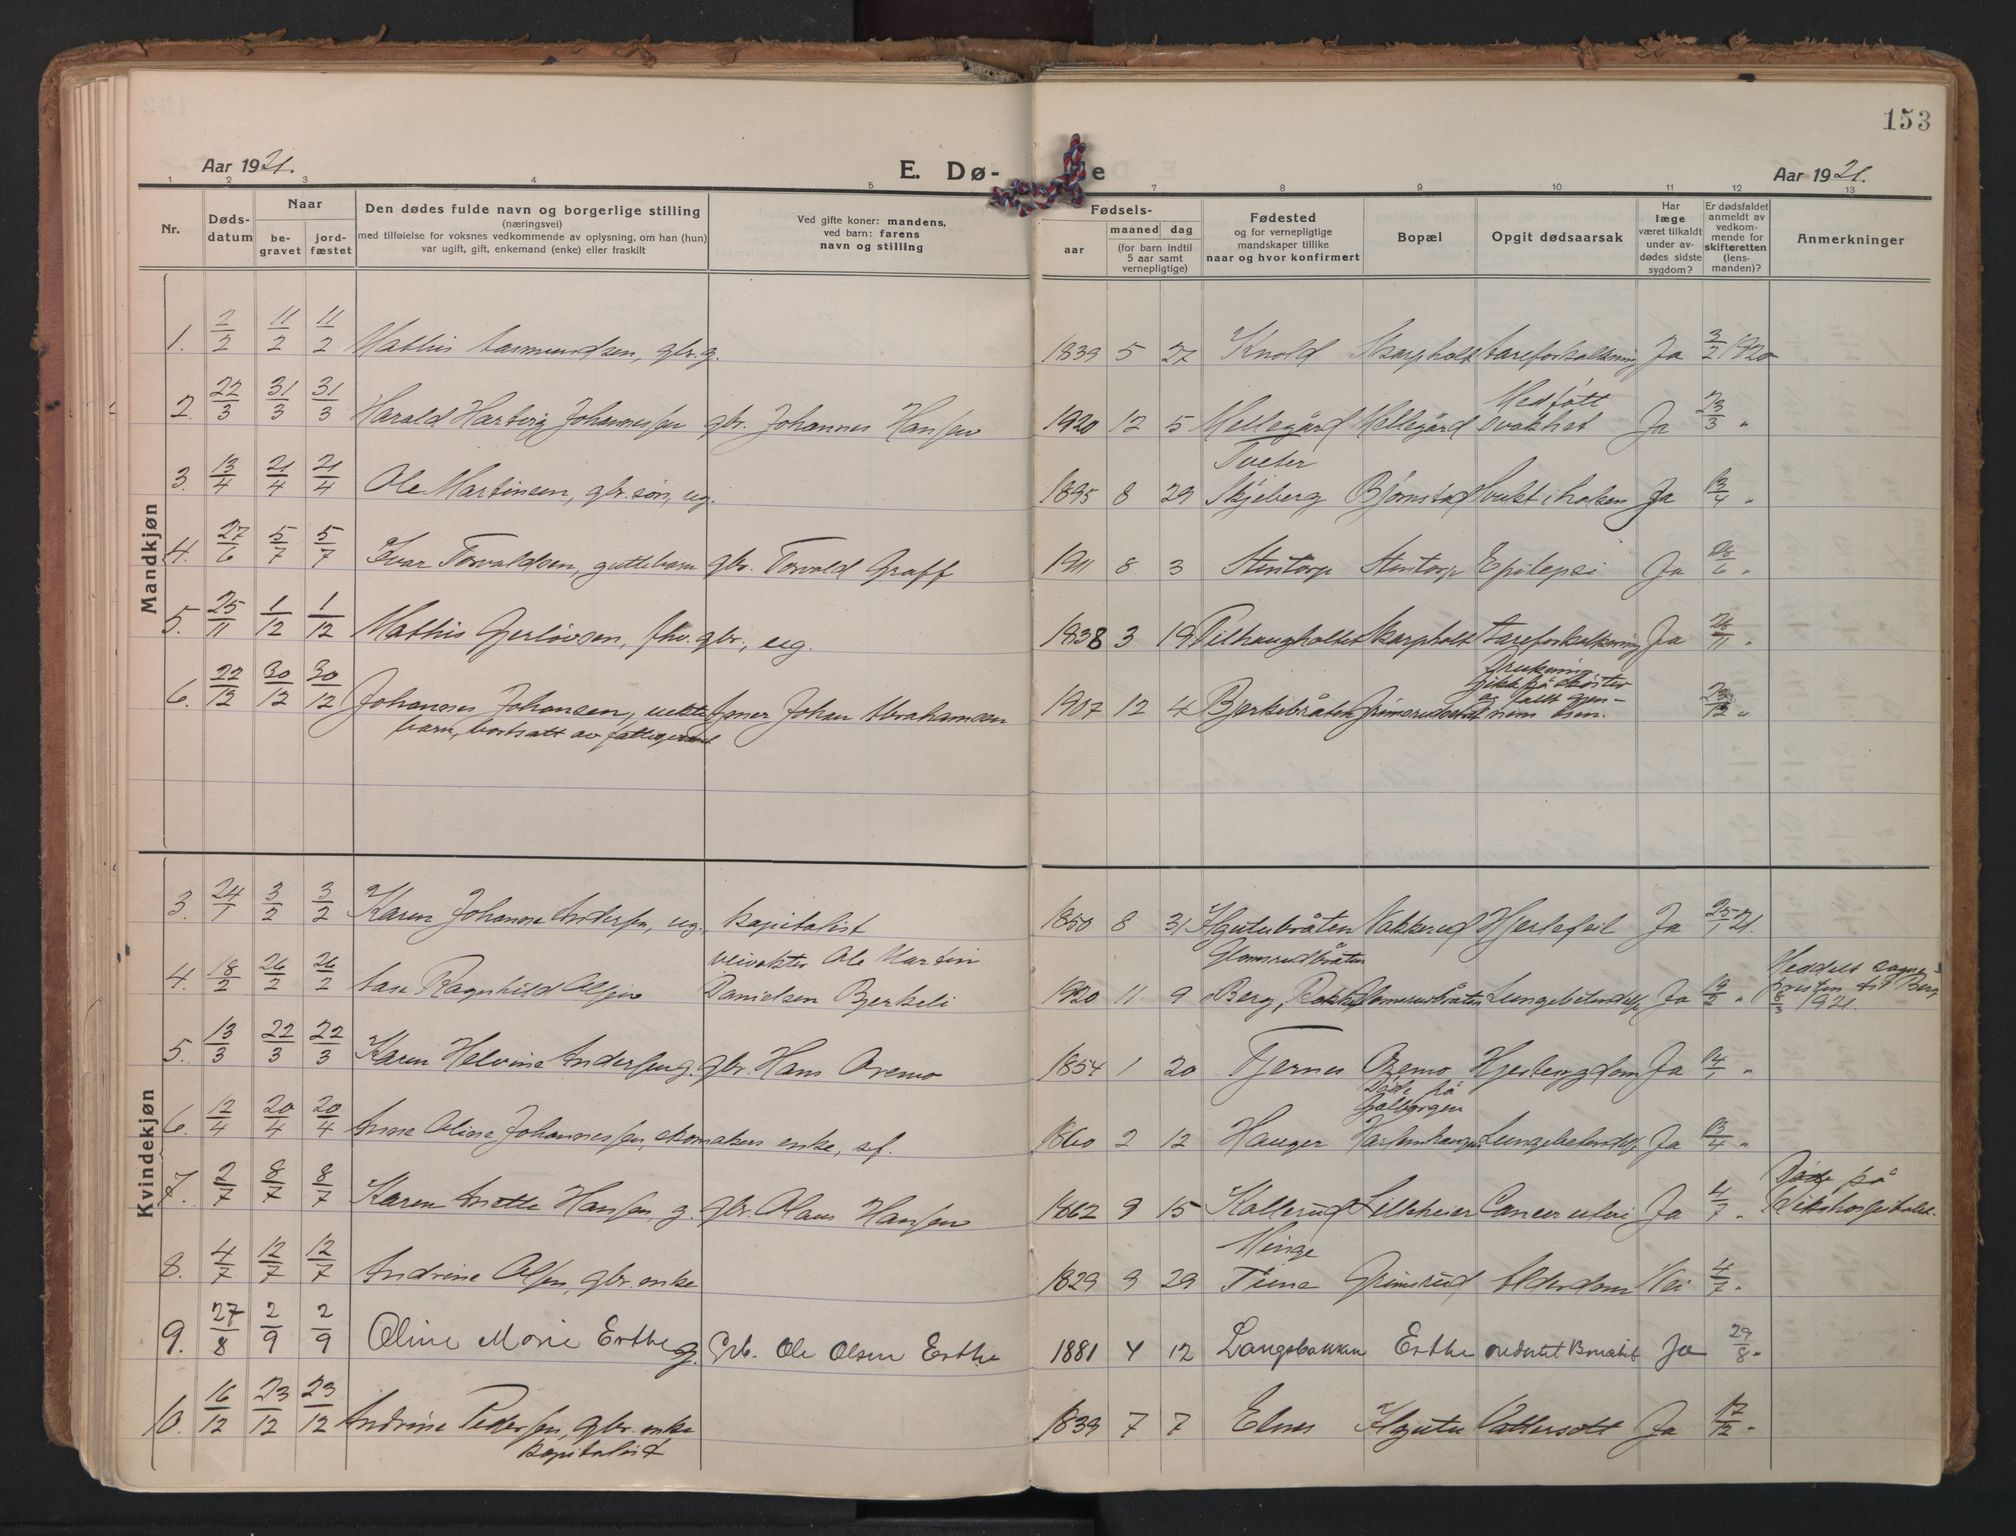 153
Aar 1921.
E. Dø-
e
Aar 1921.
1 2 3 4 5 7 8 9 10 11 12 13
Nr.
Døds-
datum
Naar
be-
gravet
jord-
fæstet
Den dødes fulde navn og borgerlige stilling
(næringsvei)
med tilføielse for voksnes vedkommende av oplysning, om han (hun)
var ugift, gift, enkemand (enke) eller fraskilt
Ved gifte koner: mandens,
ved barn: farens
navn og stilling
Fødsels-
aar
maaned dag
(for barn indtil
5 aar samt
vernepligtige)
Fødested
og for vernepligtige
mandskaper tillike
naar og hvor konfirmert
Bopæl
Opgit dødsaarsak
Har
læge
været tilkaldt
under av-
dødes sidste
sygdom?
Er dødsfaldet
anmeldt av
vedkom-
mende for
skifteretten
(lens-
manden)?
Anmerkninger
Mandkjøn
1. 2/2 11/2 11/2 Mathis Aasmundsen, gbr. g. 1839 5 27 Knold Skarpholt Aareforkalkning Ja 3/2 1920
2. 22/3 31/3 31/3 Harald Harberg Johannessen gbr. Johannes Hansen 1920 12 5 Mellegård Mellegård Medfött svakhet Ja 23/3 "
3. 13/4 21/4 21/4 Ole Martinsen, gbr. søn, ug. 1895 8 29 Tveter Skjeberg Bjørnstad Ja 13/4 "
4. 27/6 5/7 5/7 Ivar Torvaldsen, guttebarn gbr. Torvald Graff 1911 8 3 Stentorp Stentorp Epilepsi Ja 28/6 "
5. 25/11 1/12 1/12 Mathis Gjerløvsen, fhv. gbr., ug. 1838 3 19 Skarpholt Aareforkalkning Ja 26/11 "
6. 22/12 30/12 30/12 Johannes Johansen, Johan Abrahamsen 1907 12 4 Bjerkebråten
barn, bortsatt av fattigvæsnet
drukning
gikk på skøiter
og falt gjen-
nem isen. 23/12 "
Kvindekjøn
3. 24/1 3/2 3/2 Karen Johanne Andersen, ug. kapitalist 1850 8 31 Nakkerud Hjertefeil Ja 25/1 21.
4. 18/2 26/2 26/2 Aase Ragnhild Olsen veivokter Ole Martin
Danielsen Bjerkeli 1920 11 9 Glomsrudbråten
Berg, Rokke Glomsrudbråten Lungebetendelse Ja 19/2 " Meddelt sogne-
presten til Berg
8/3 1921.
5. 13/3 22/3 22/3 Karen Helvine Andersen g. gbr. Hans Oremo 1854 1 20 Tjernes Oremo Ja 14/1 "
6. 12/4 20/4 20/4 Anne Oline Johannessen, skomakers enke, sf. 1860 2 12 Hauger Døde på
Lungebetendelse Ja 13/4 "
7. 2/7 8/7 8/7 Karen Anette Hansen, g. gbr. Olaus Hansen 1862 9 15 Kallerud Lilleheier Cancer uteri Ja 4/7 " Døde på
Rikshospitalet.
8. 4/7 12/7 12/7 Andrine Olsen, gbr. enke 1829 9 29 Minge
Tune Grimsrud Alderdom Nei 4/7 "
9. 27/8 2/9 2/9 Oline Marie Erthe g. Grb. Ole Olsen Erthe 1881 4 12 Langsbakken Erthe Ja 29/8 "
10. 16/12 23/12 23/12 Andrine Pedersen, gbr. enke
kapitalist 1839 7 7 Elnes Vattersott Ja 17/12 "